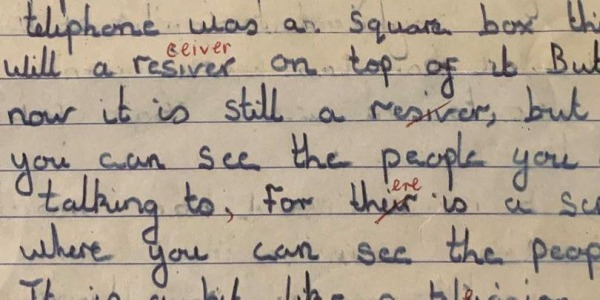 teliphone was an square box thi
ceiver
will a resiver on top of it But
now it is still a resiver, but
you can see the people you
ere
talking to, for their is a sc
where you can see the peop
It is a bit like a